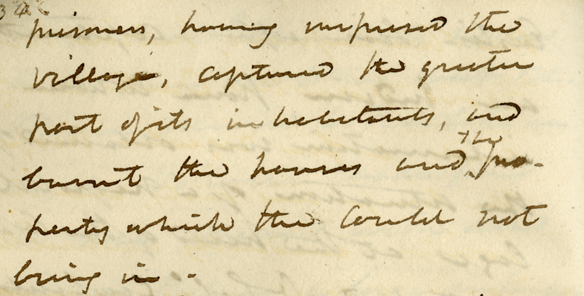 prisoners, having surprised the
village, captured the greater
part of its inhabitants, and
burnt the houses and the pro-
perty which the could not
bring in.